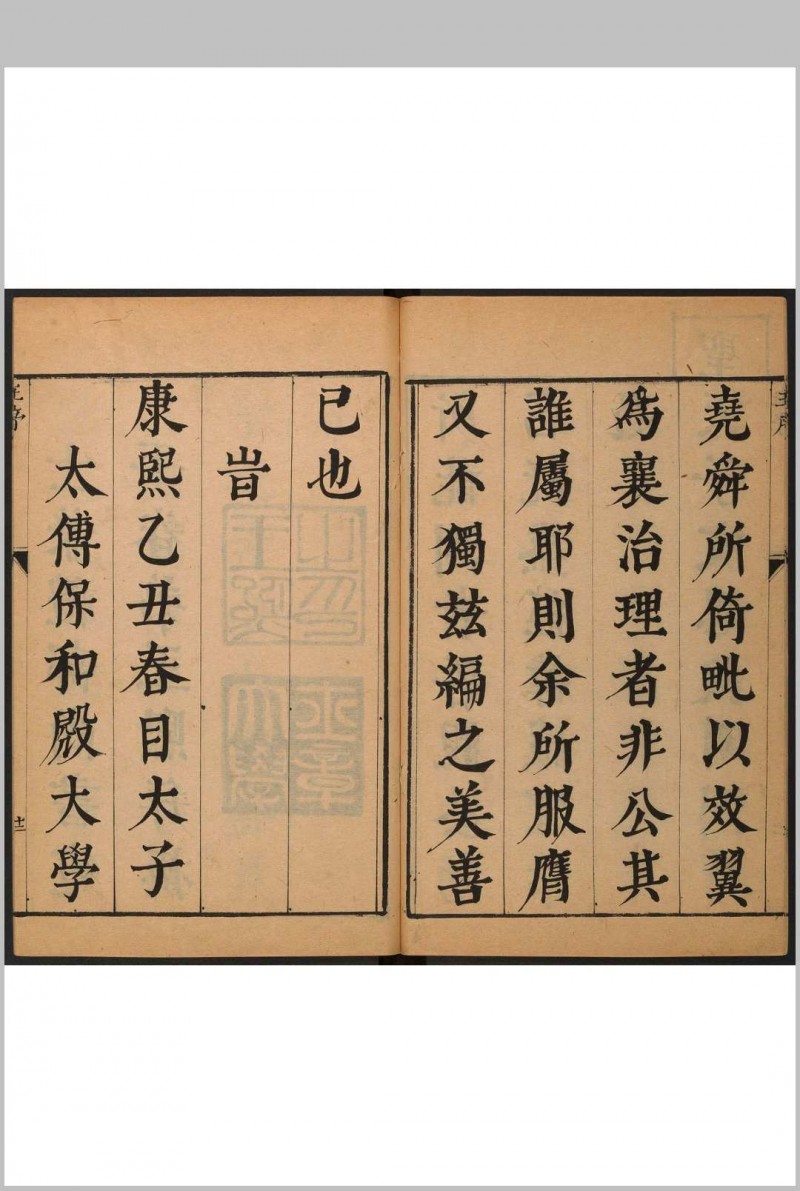 堯舜所倚毗以效翼
為襄治理者非公其
誰屬耶則余所服膺
又不獨玆編之美善
已也
旹
康熙乙丑春目太子
太傅保和殿大學
十二